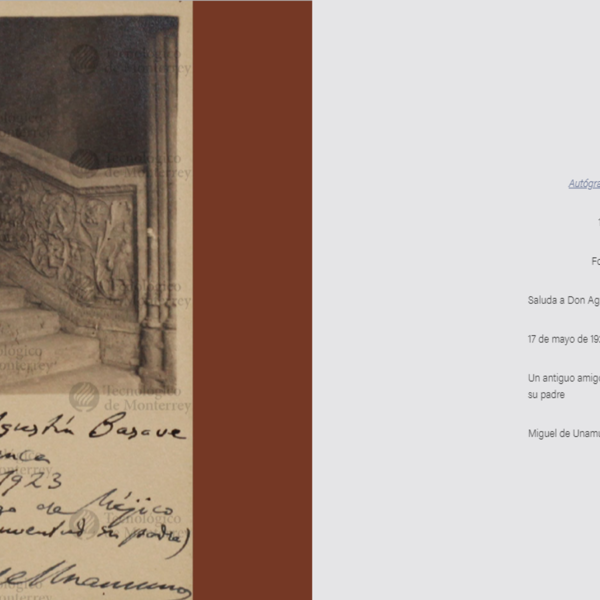 Tecnológico
de Monterrey
Tecnológico
de Monterrey
Tecnológico
de Monterrey
Tecnológico
de Monterrey
Tecnológico
de Monterrey
Agustín Basave
1923
de Méjico
juventud su padre)
Unamuno
Autógra
Fo
Saluda a Don Ag
17 de mayo de 19
Un antiguo amig
su padre
Miguel de Unamu